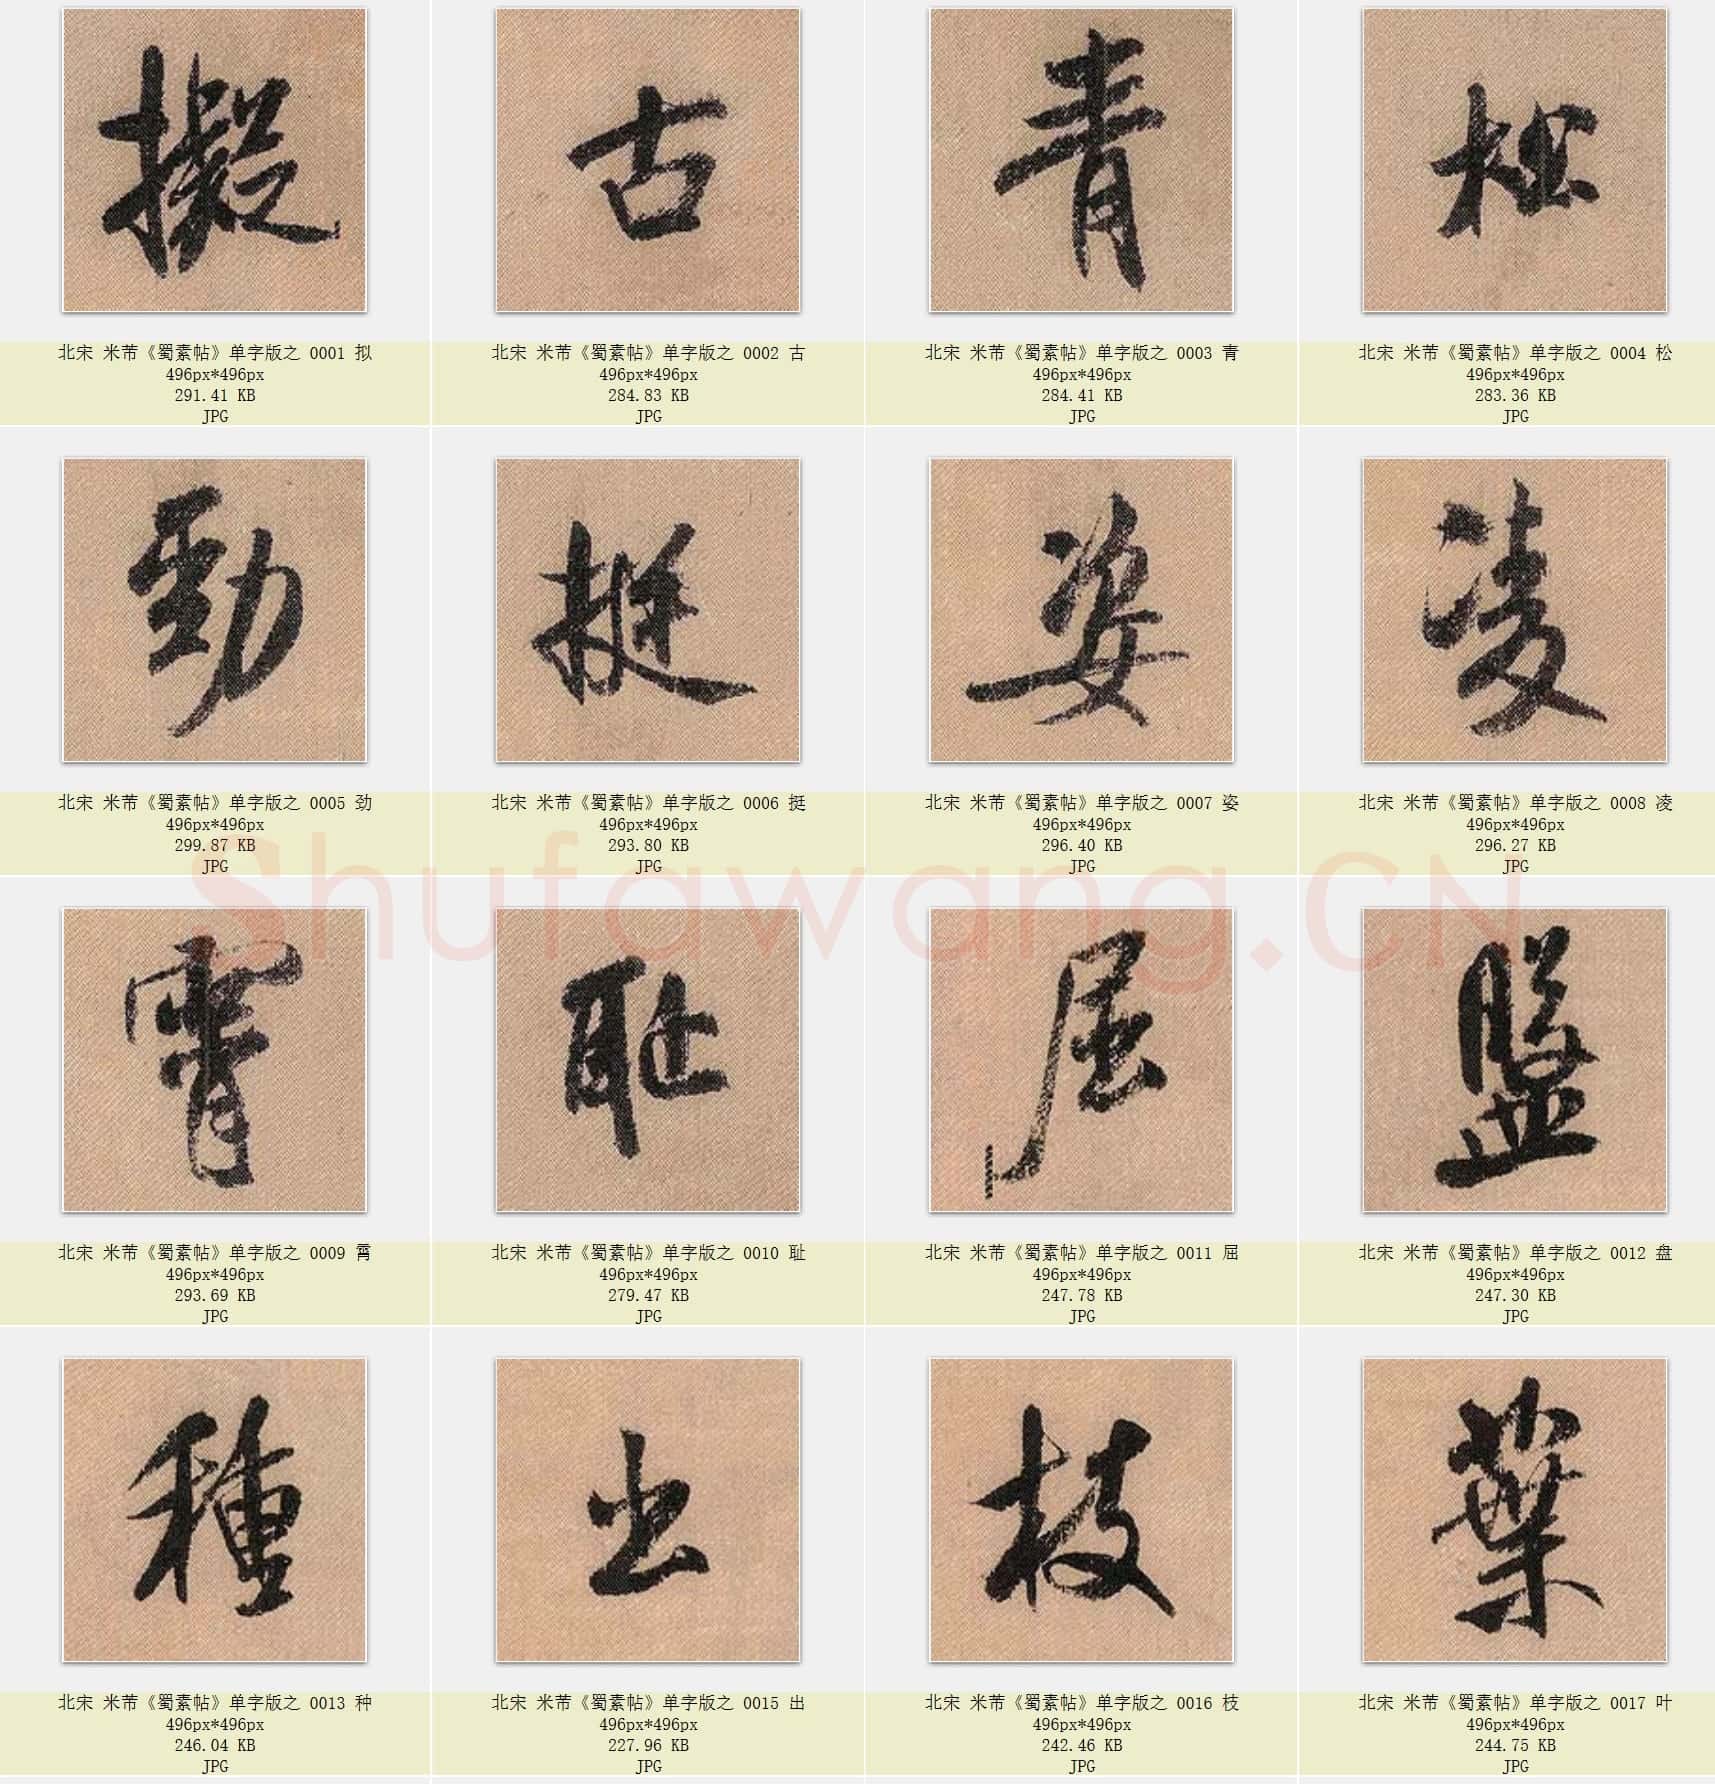 擬 古 青 松
北宋 米芾《蜀素帖》单字版之 0001 拟 北宋 米芾《蜀素帖》单字版之 0002 古 北宋 米芾《蜀素帖》单字版之 0003 青 北宋 米芾《蜀素帖》单字版之 0004 松
496px*496px 496px*496px 496px*496px 496px*496px
291.41 KB 284.83 KB 284.41 KB 283.36 KB
JPG JPG JPG JPG
勁 挺 姿 凌
北宋 米芾《蜀素帖》单字版之 0005 劲 北宋 米芾《蜀素帖》单字版之 0006 挺 北宋 米芾《蜀素帖》单字版之 0007 姿 北宋 米芾《蜀素帖》单字版之 0008 凌
496px*496px 496px*496px 496px*496px 496px*496px
299.87 KB 293.80 KB 296.40 KB 296.27 KB
JPG JPG JPG JPG
Shufawang.CN
霄 耻 屈 盤
北宋 米芾《蜀素帖》单字版之 0009 霄 北宋 米芾《蜀素帖》单字版之 0010 耻 北宋 米芾《蜀素帖》单字版之 0011 屈 北宋 米芾《蜀素帖》单字版之 0012 盘
496px*496px 496px*496px 496px*496px 496px*496px
293.69 KB 279.47 KB 247.78 KB 247.30 KB
JPG JPG JPG JPG
種 出 枝 葉
北宋 米芾《蜀素帖》单字版之 0013 种 北宋 米芾《蜀素帖》单字版之 0015 出 北宋 米芾《蜀素帖》单字版之 0016 枝 北宋 米芾《蜀素帖》单字版之 0017 叶
496px*496px 496px*496px 496px*496px 496px*496px
246.04 KB 227.96 KB 242.46 KB 244.75 KB
JPG JPG JPG JPG